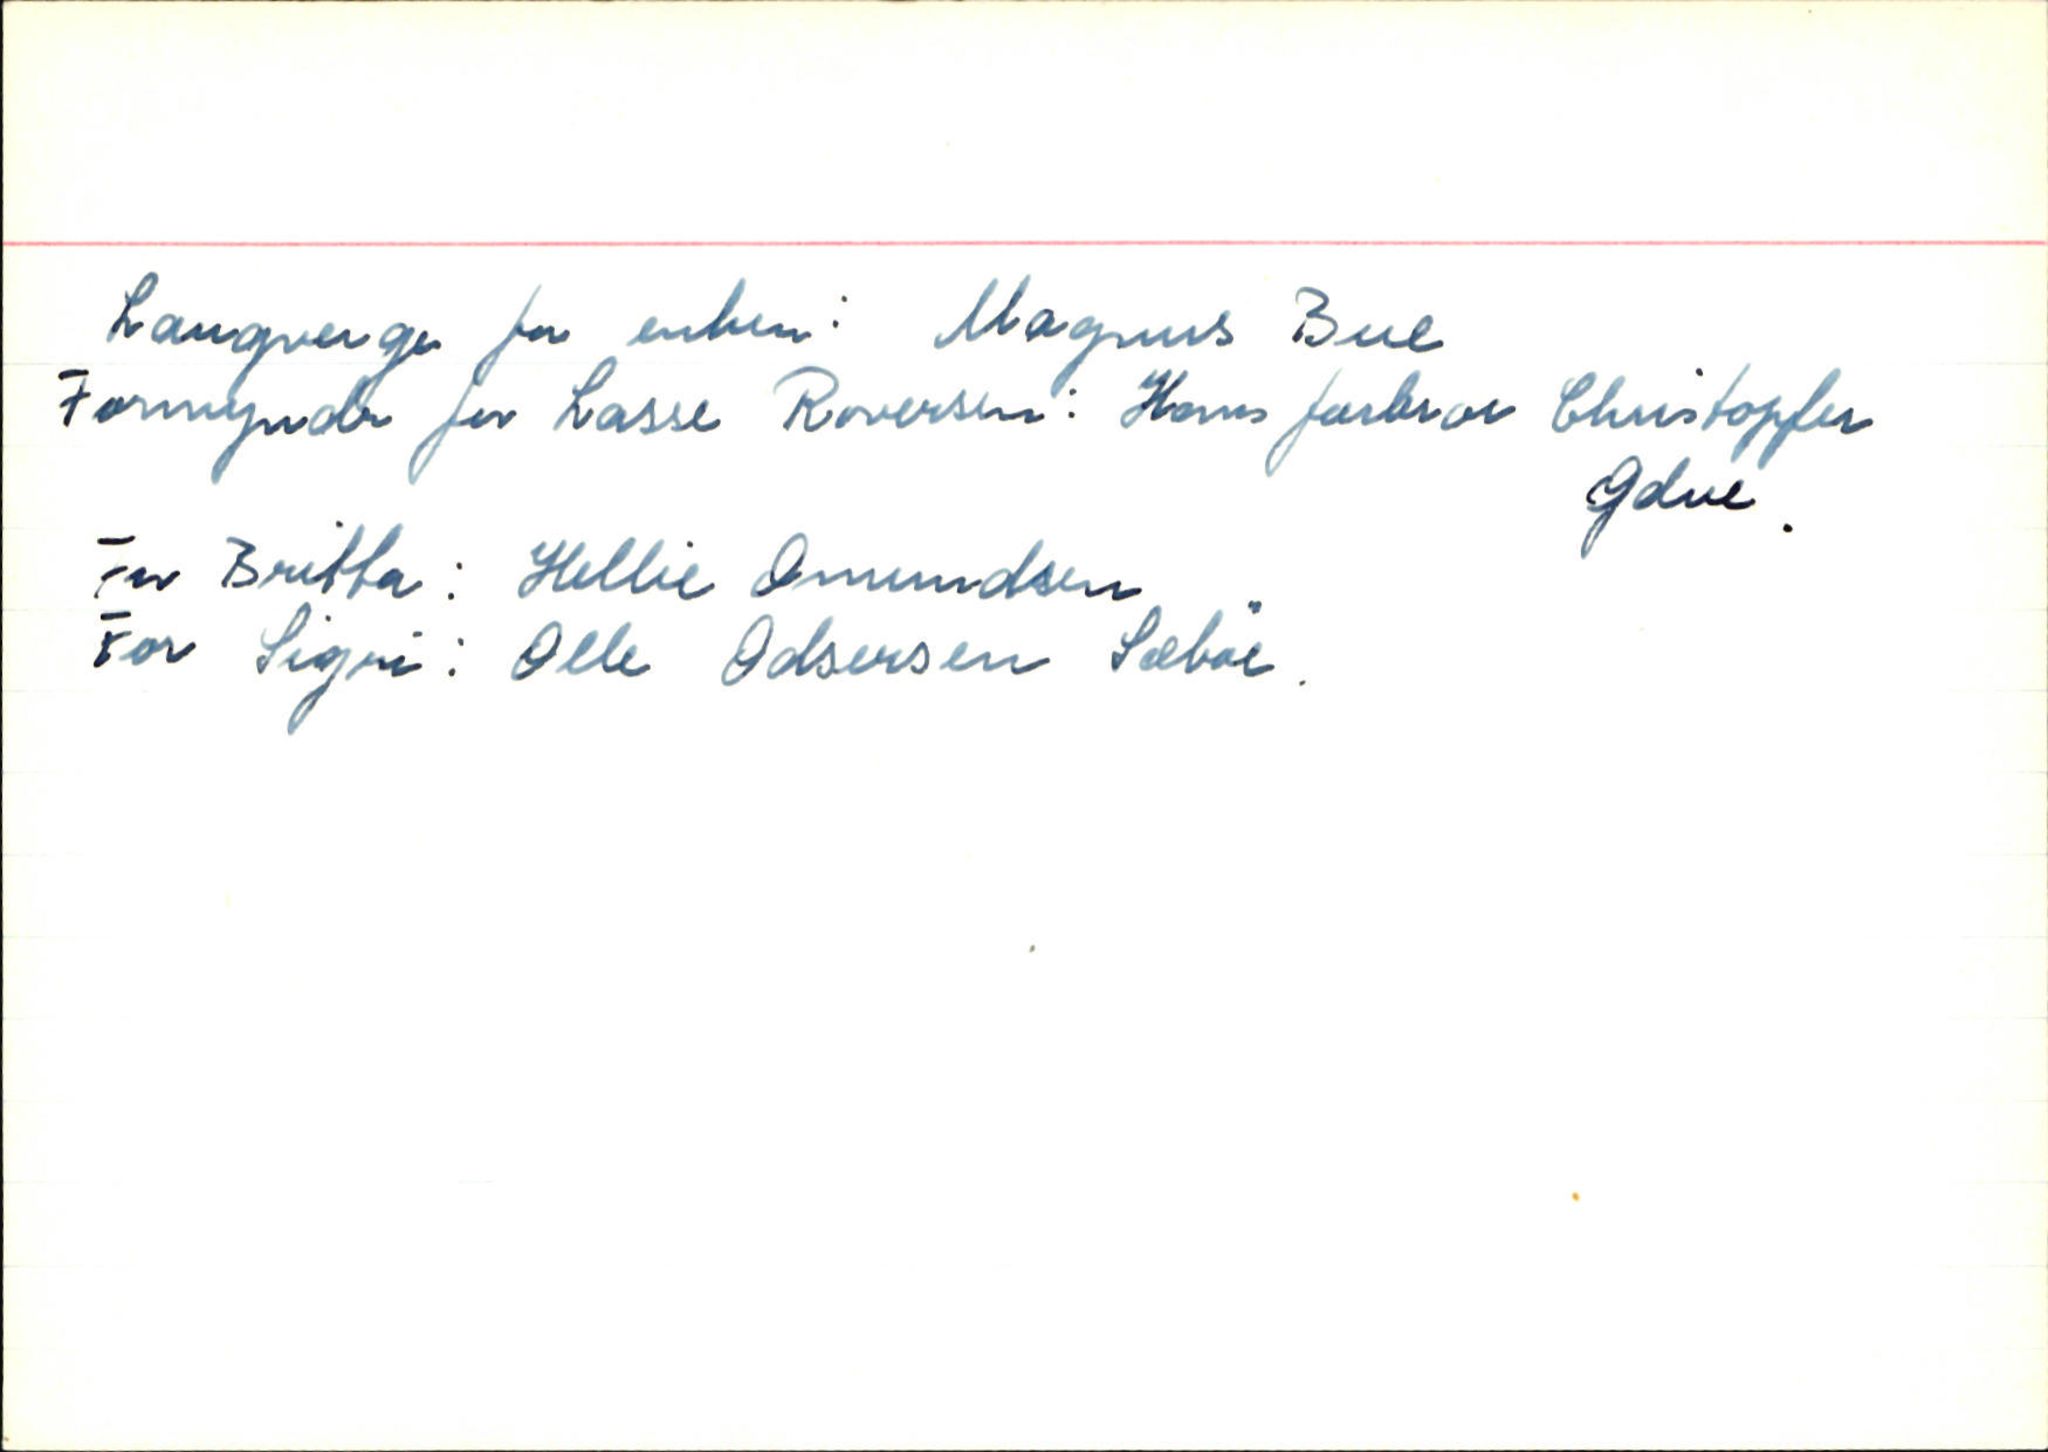 Laugverge for enken: Magnus Bue
Formynder for Lasse Roversen: Hans farbror Christopfer
Gdue.
For Britta: Hellie Omundsen
For Signi: Olle Odsersen Sæböe.